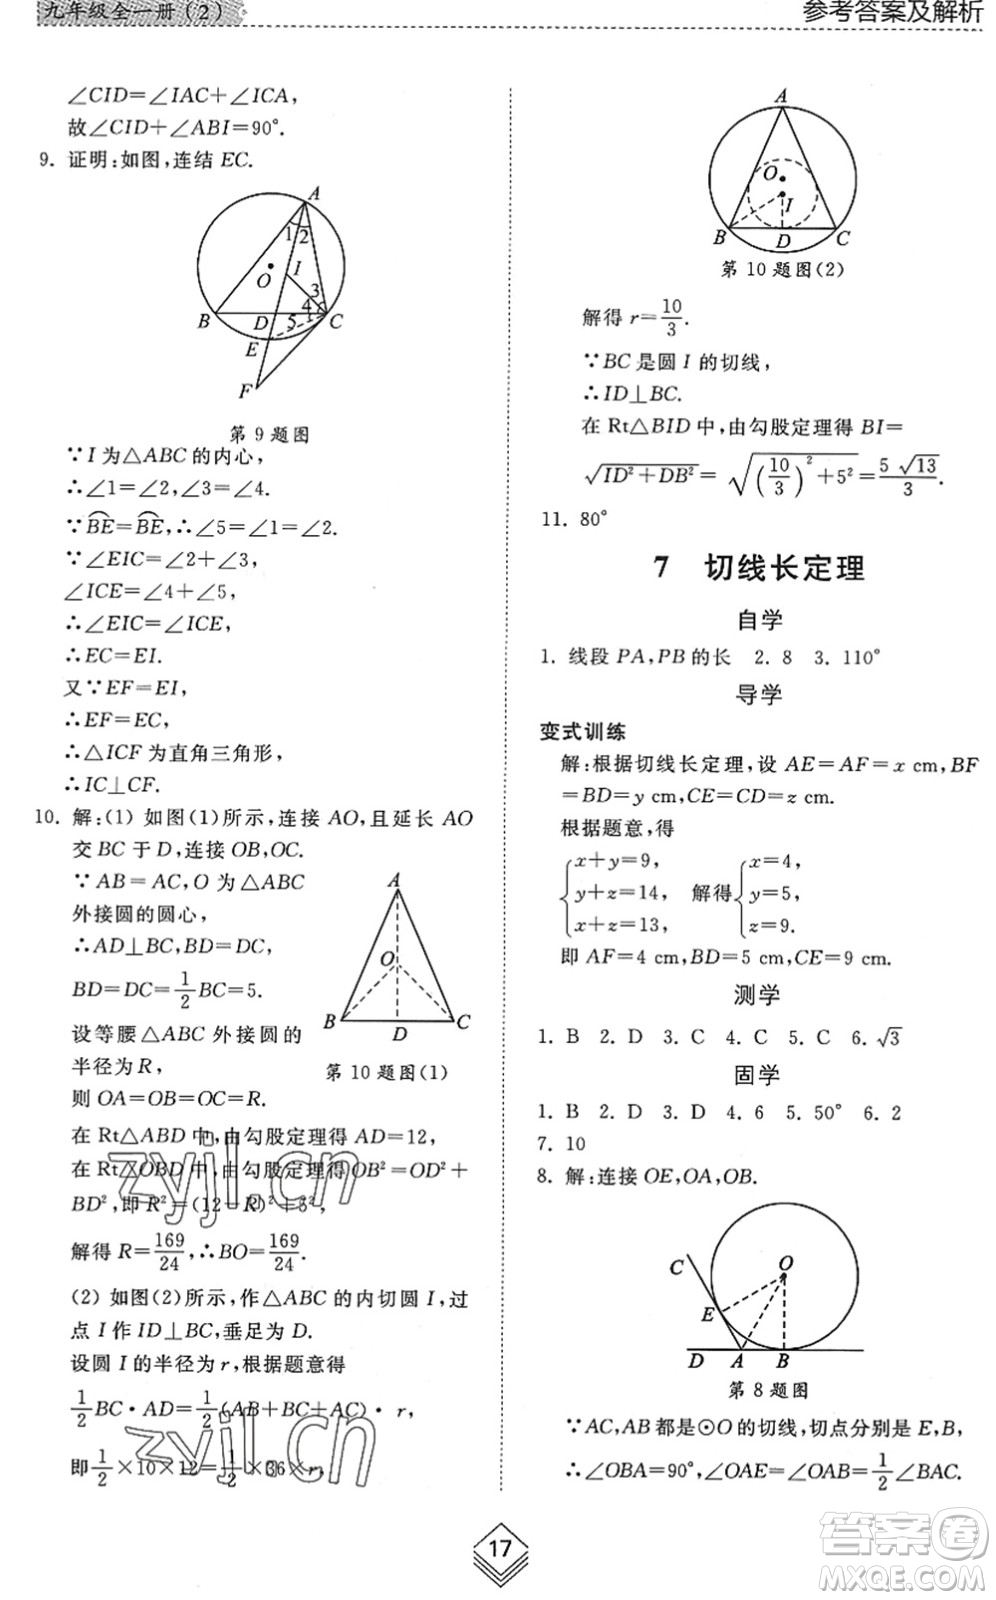 九年级全一册(2)
参考答案及解析
∠CID=∠IAC+∠ICA,
故∠CID+∠ABI=90°.
9. 证明:如图,连结 EC.
A
1 2
I
O
3
4
B D 5 C
E
F
第 9 题图
∵I 为△ABC 的内心,
∴∠1=∠2,∠3=∠4.
∵BE=BE,∴∠5=∠1=∠2.
∵∠EIC=∠2+∠3,
∠ICE=∠4+∠5,
∴∠EIC=∠ICE,
∴EC=EI.
又∵EF=EI,
∴EF=EC,
∴△ICF 为直角三角形,
∴IC⊥CF.
10. 解:(1) 如图(1)所示,连接 AO,且延长 AO
交 BC 于 D,连接 OB,OC.
∵ AB = AC, O 为 △ABC
外接圆的圆心,
∴AD⊥BC,BD=DC,
BD=DC=1/2BC=5.
设等腰△ABC 外接圆的
半径为 R,
则 OA=OB=OC=R.
A
O
B D C
第 10 题图(1)
在 Rt△ABD 中,由勾股定理得 AD=12,
在 Rt△OBD 中,由勾股定理得 OB²=OD²+
BD²,即 R²=(12-R)²+5²,
解得 R=169/24,∴BO=169/24.
(2) 如图(2)所示,作△ABC 的内切圆 I,过
点 I 作 ID⊥BC,垂足为 D.
设圆 I 的半径为 r,根据题意得
1/2BC·AD=1/2(AB+BC+AC)·r,
即1/2×10×12=1/2×36×r,
A
O
I
B D C
第 10 题图(2)
解得 r=10/3.
∵BC 是圆 I 的切线,
∴ID⊥BC.
在 Rt△BID 中,由勾股定理得 BI=
√(ID²+DB²)=√((10/3)²+5²)=5√13/3.
11. 80°
7 切线长定理
自学
1. 线段 PA,PB 的长 2. 8 3. 110°
导学
变式训练
解:根据切线长定理,设 AE=AF=x cm,BF
=BD=y cm,CE=CD=z cm.
根据题意,得
{x+y=9, {x=4,
y+z=14, 解得 y=5,
x+z=13, z=9.
即 AF=4 cm,BD=5 cm,CE=9 cm.
测学
1. B 2. D 3. C 4. C 5. C 6. √3
固学
1. B 2. D 3. D 4. 6 5. 50° 6. 2
7. 10
8. 解:连接 OE,OA,OB.
C
O
E
D A B
第 8 题图
∵AC,AB 都是⊙O 的切线,切点分别是 E,B,
∴∠OBA=90°,∠OAE=∠OAB=1/2∠BAC.
zyjl.cn
zyjl.cn
17
答案圈
MXQE.COM